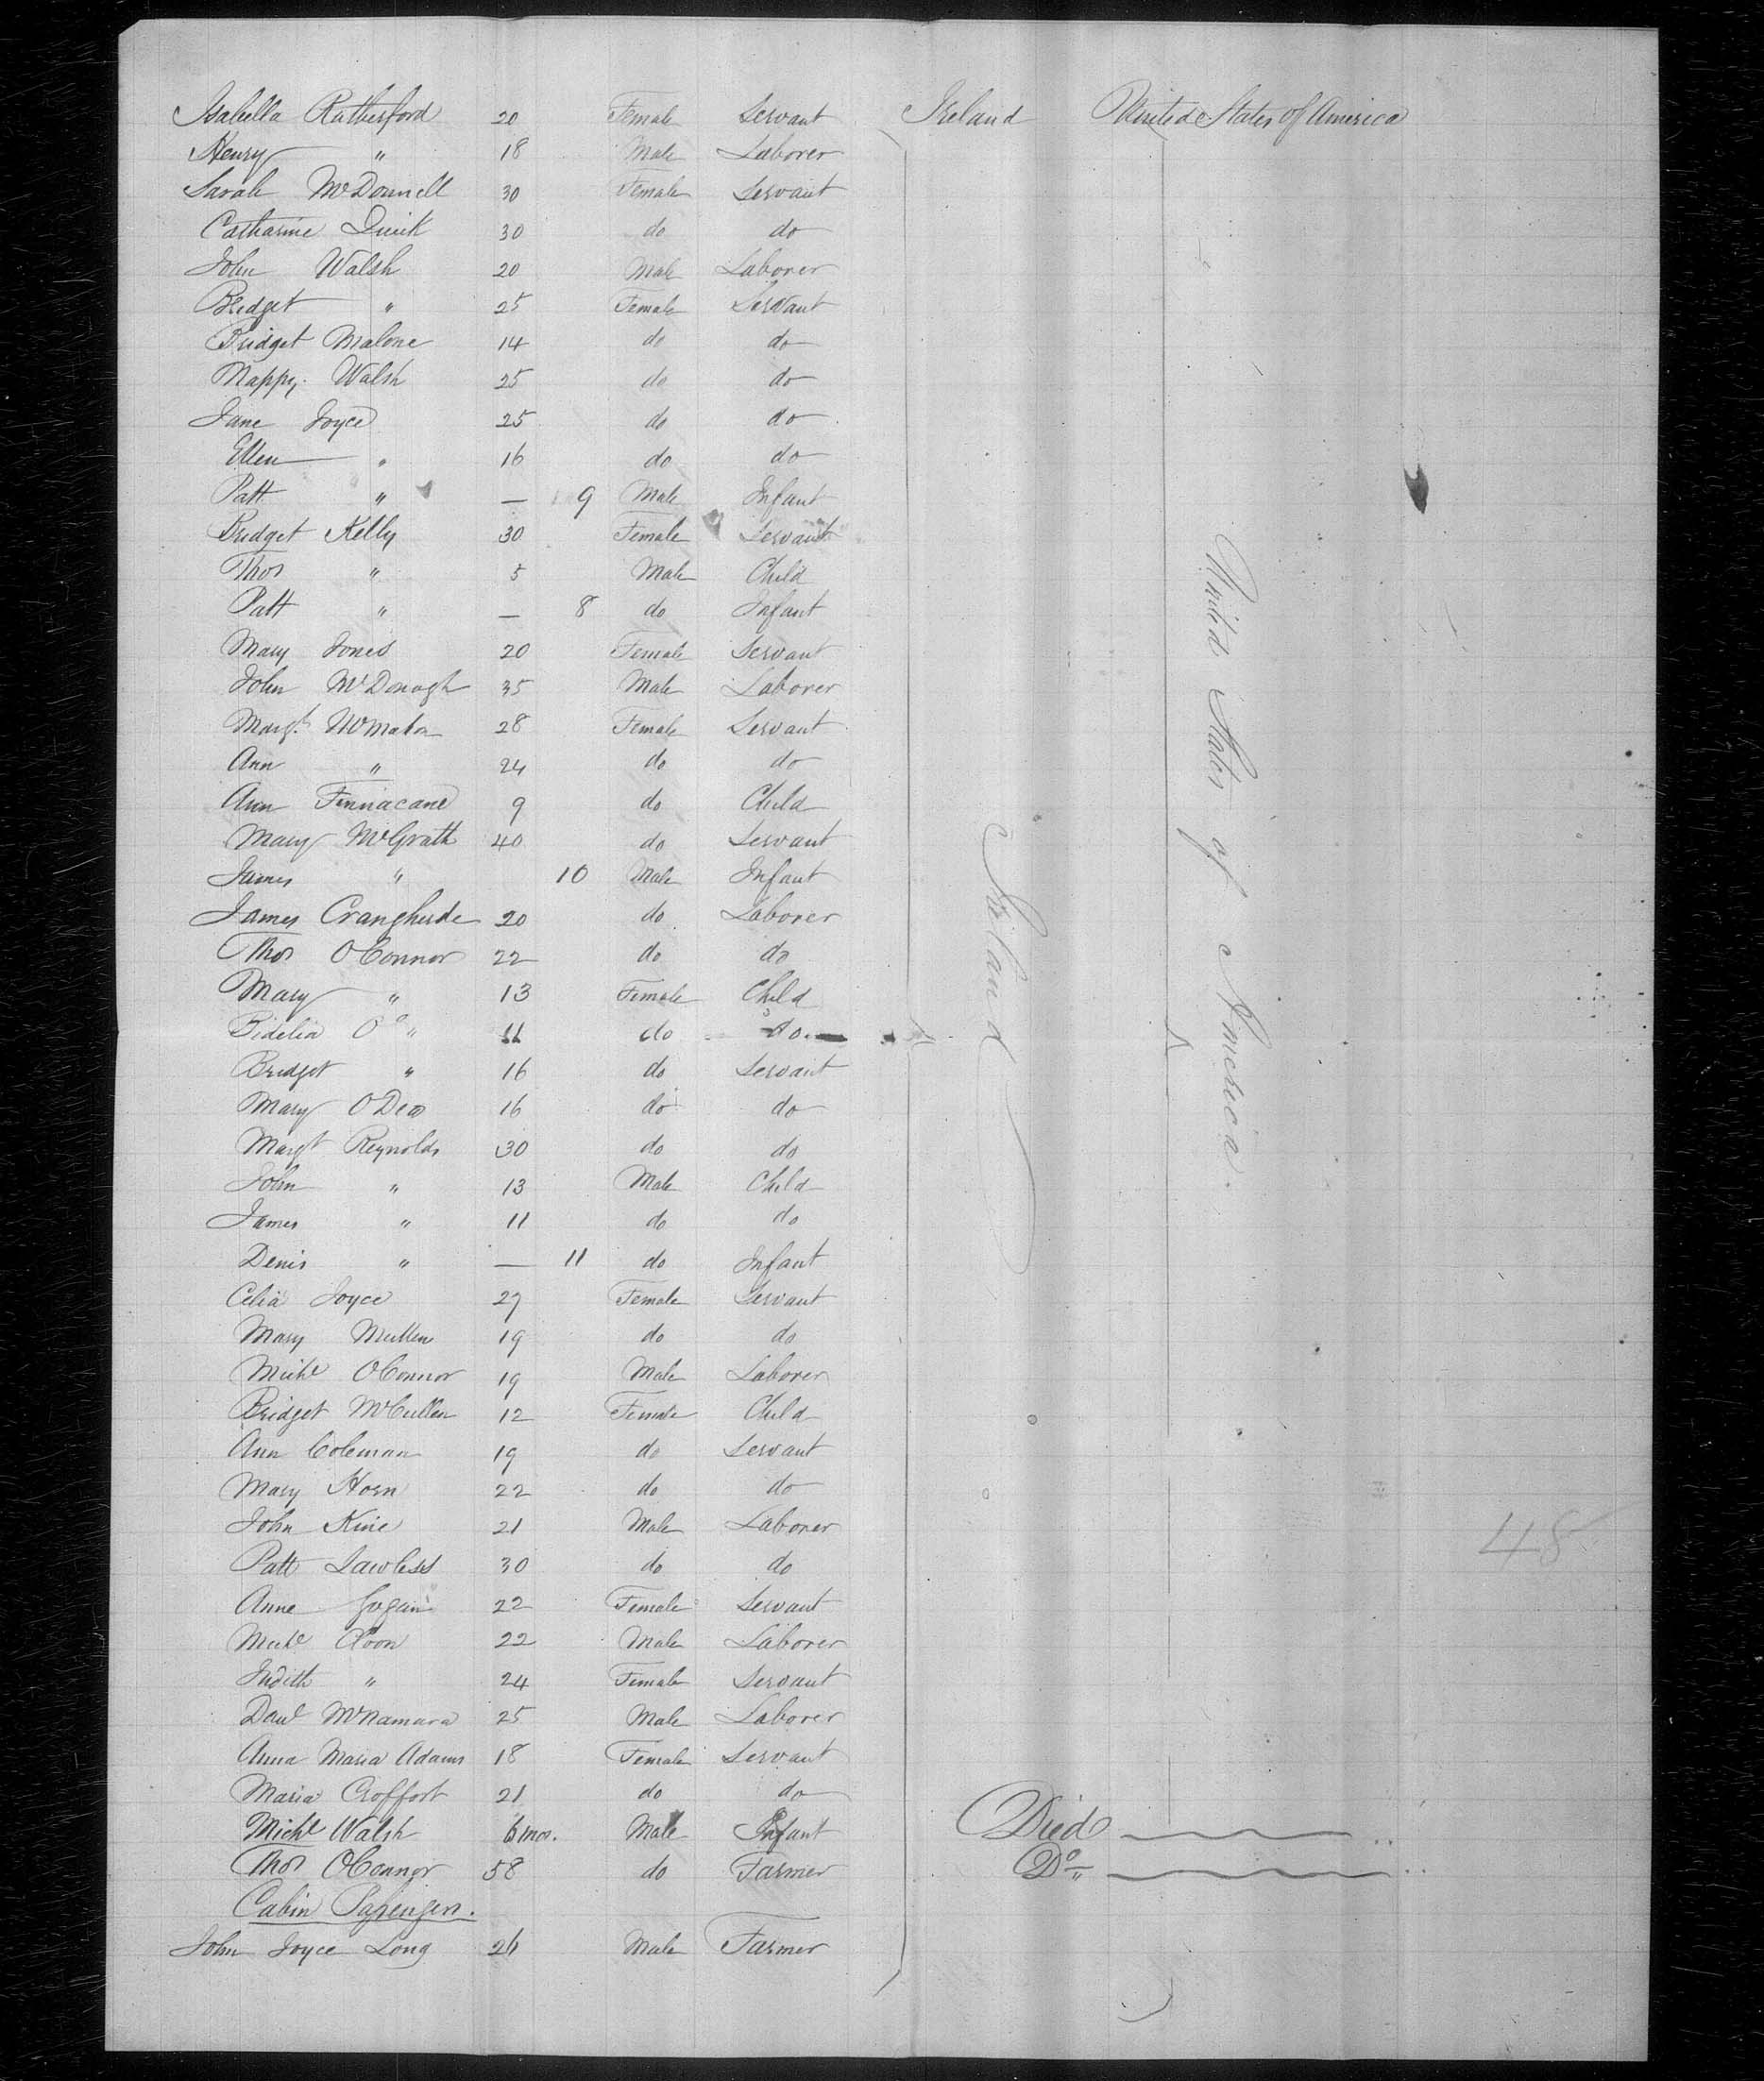 Isabella Rutherford 20 Female Servant Ireland United States of America
Henry " 18 Male Laborer
Sarah McDonnell 30 Female Servant
Catharine Quirk 30 do do
John Walsh 20 Male Laborer
Bridget " 25 Female Servant
Bridget Malone 14 do do
Nappy Walsh 25 do do
Jane Joyce 25 do do
Ellen " 16 do do
Patt " — 9 Male Infant
Bridget Kelly 30 Female Servant
Thos " 5 Male Child
Patt " — 8 do Infant
Mary Jones 20 Female Servant
John McDonogh 35 Male Laborer
Margt McMahon 28 Female Servant
Ann " 24 do do
Ann Finnacane 9 do Child
Mary McGrath 40 do Servant
James " 10 Male Infant
James 20 do Laborer
Thos OConnor 22 do do
Mary " 13 Female Child
Bidelia O " 11 do do
Bridget " 16 do Servant
Mary ODea 16 do do
Margt Reynolds 30 do do
John " 13 Male Child
James " 11 do do
Denis " — 11 do Infant
Celia Joyce 27 Female Servant
Mary Mullen 19 do do
Michl OConnor 19 Male Laborer
Bridget McCullen 12 Female Child
Ann Coleman 19 do Servant
Mary Horn 22 do do
John Kine 21 Male Laborer
Patt Lawless 30 do do
Anne Gogan 22 Female Servant
Michl 22 Male Laborer
Judith " 24 Female Servant
Danl McNamara 25 Male Laborer
Anna Maria Adams 18 Female Servant
Maria Croffort 21 do do
Michl Walsh 6 mos. Male Infant Died
Thos OConnor 58 do Farmer Do "
Cabin Passengers.
John Joyce Long 26 Male Farmer
Ireland
United States of America.
48